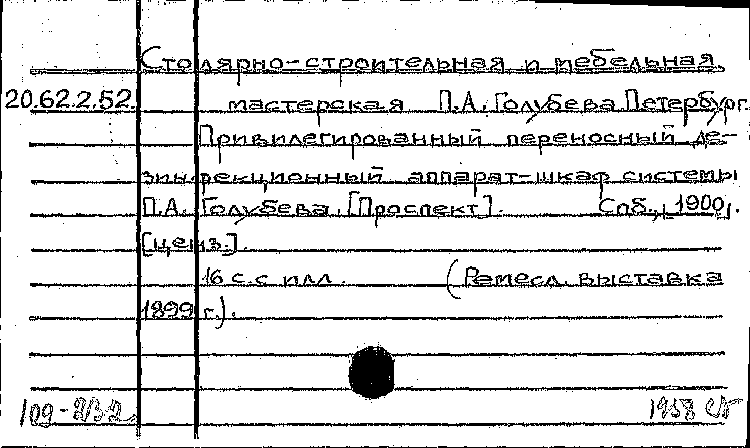 Столярно-строительная и мебельная
20.62.2.52. мастерская П.А. Голубева Петербург.
Привилегированный переносный де-
зинфекционный аппарат-шкаф системы
П.А. Голубева. [Проспект]. Спб., 1900.
[ценз.].
16 с. с илл. (Ремесл. выставка
1899 г.).
109-
1958